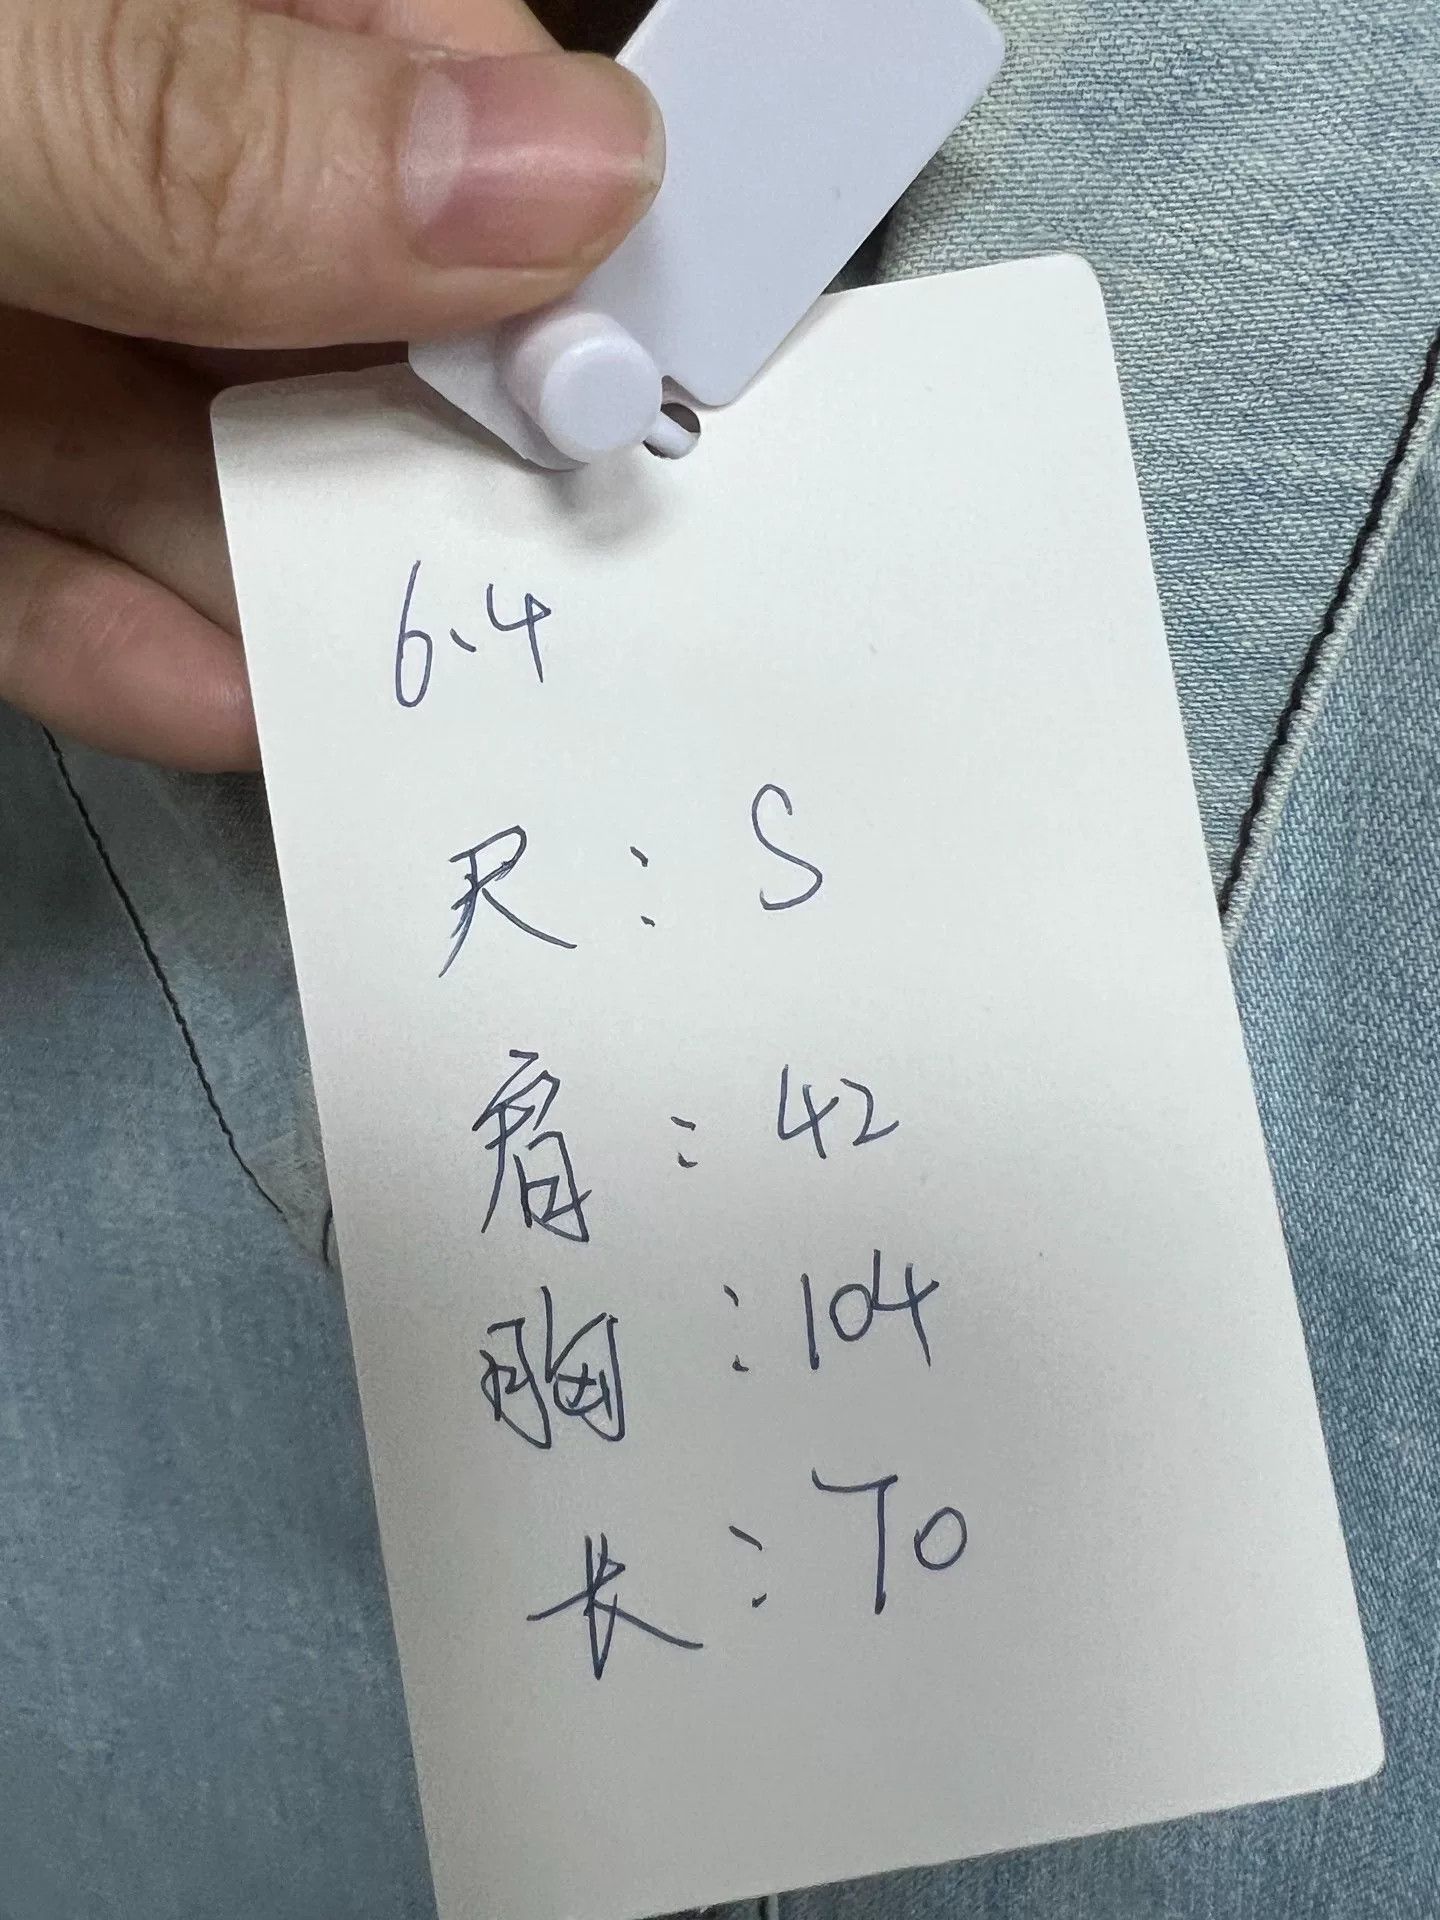 6.4
尺：S
肩：42
胸：104
长：70